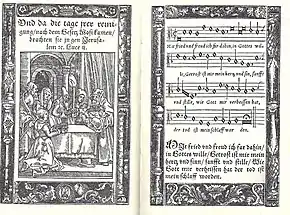 Und da die tage jrer reini-
gung/nach dem Gesetz Mosi kamen/
brachten sie jn gen Jerusa-
lem ꝛc. Luce ij.
Mit fried und freud ich far dahin, in Gottes wille
Getrost ist mir mein hertz und sin, sanfft
und stille, wie Gott mir verheissen hat,
der tod ist mein schlaff wor den.
Mit fried und freud ich far dahin/
in Gottes wille/ Getrost ist mir mein
hertz und sinn/ sanfft und stille/ Wie
Gott mir verheissen hat der tod ist
mein schlaff worden.